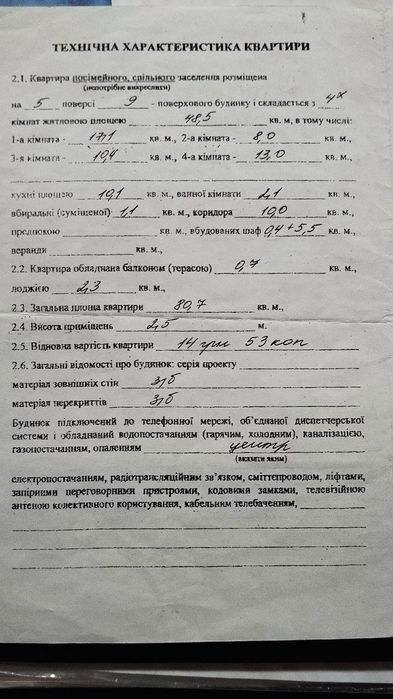 ТЕХНІЧНА ХАРАКТЕРИСТИКА КВАРТИРИ
2.1. Квартира посімейного, спільного заселення розміщена
(непотрібне викреслити)
на 5 поверсі 9 - поверхового будинку і складається з 4х
кімнат житловою площею 48,5 кв. м, в тому числі:
1-а кімната - 17,1 кв. м., 2-а кімната - 8,0 кв. м.,
3-я кімната - 10,4 кв. м., 4-а кімната - 13,0 кв. м.,
кухні площею 10,1 кв. м., ванної кімнати 2,1 кв. м.,
вбиральні (суміщеної) 1,1 кв. м., коридора 10,0 кв. м.,
передпокою кв. м., вбудованих шаф 0,4+5,5 кв. м.,
веранди кв. м.,
2.2. Квартира обладнана балконом (терасою) 0,7 кв. м.,
лоджією 2,3 кв. м.,
2.3. Загальна площа квартири 80,7 кв. м.,
2.4. Висота приміщень 2,5 м.
2.5. Відновна вартість квартири 14 грн 53 коп
2.6. Загальні відомості про будинок: серія проекту
матеріал зовнішніх стін з/б
матеріал перекриттів з/б
Будинок підключений до телефонної мережі, об'єднаної диспетчерської
системи і обладнаний водопостачанням (гарячим, холодним), каналізацією,
газопостачанням, опаленням центр
(вказати яким)
електропостачанням, радіотрансляційним зв'язком, сміттєпроводом, ліфтами,
запірними переговорними пристроями, кодовими замками, телевізійною
антеною колективного користування, кабельним телебаченням,